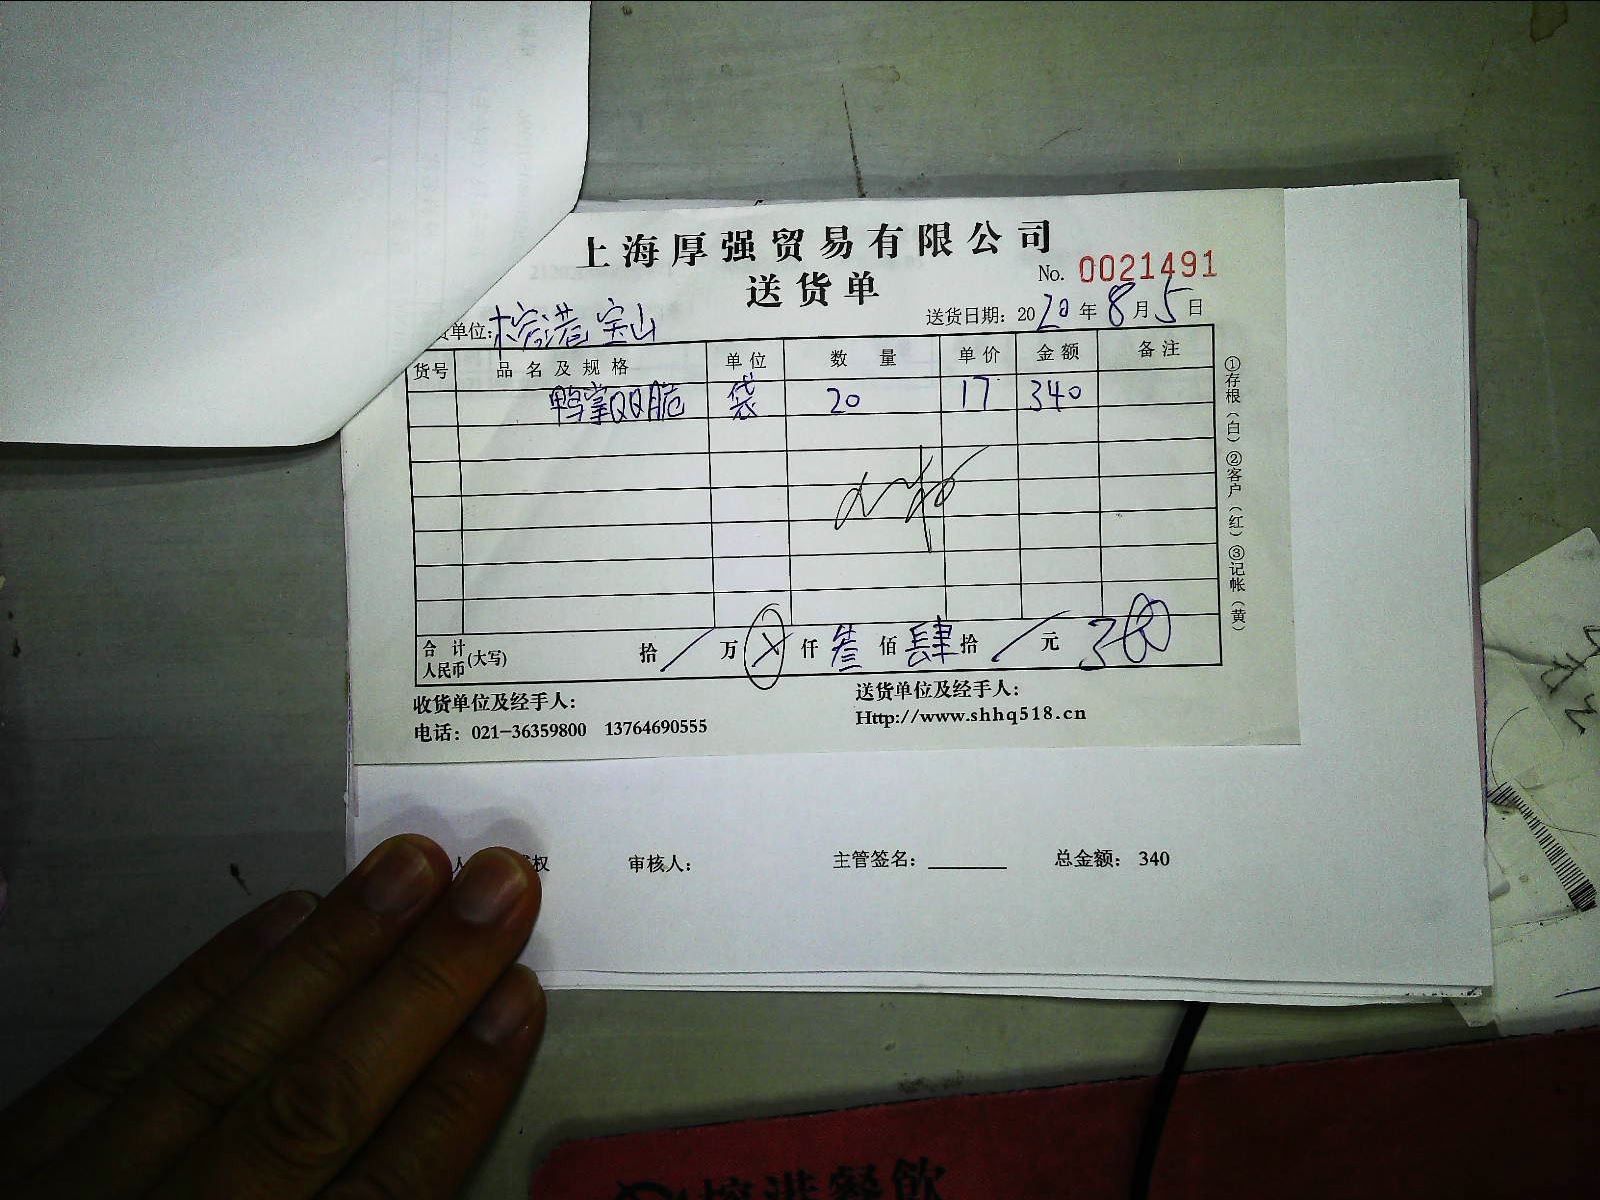 上海厚强贸易有限公司
送货单
No. 0021491
货单位: 榕港宝山
送货日期: 2020年8月5日
货号 品名及规格 单位 数量 单价 金额 备注
鸭掌QQ脆 袋 20 17 340
合计人民币(大写) 拾 / 万 ⊗ 仟 叁 佰 肆 拾 / 元 340
收货单位及经手人: 送货单位及经手人:
电话: 021-36359800 13764690555 Http://www.shhq518.cn
①存根(白)②客户(红)③记帐(黄)
人 权 审核人: 主管签名: 总金额: 340
港餐飲